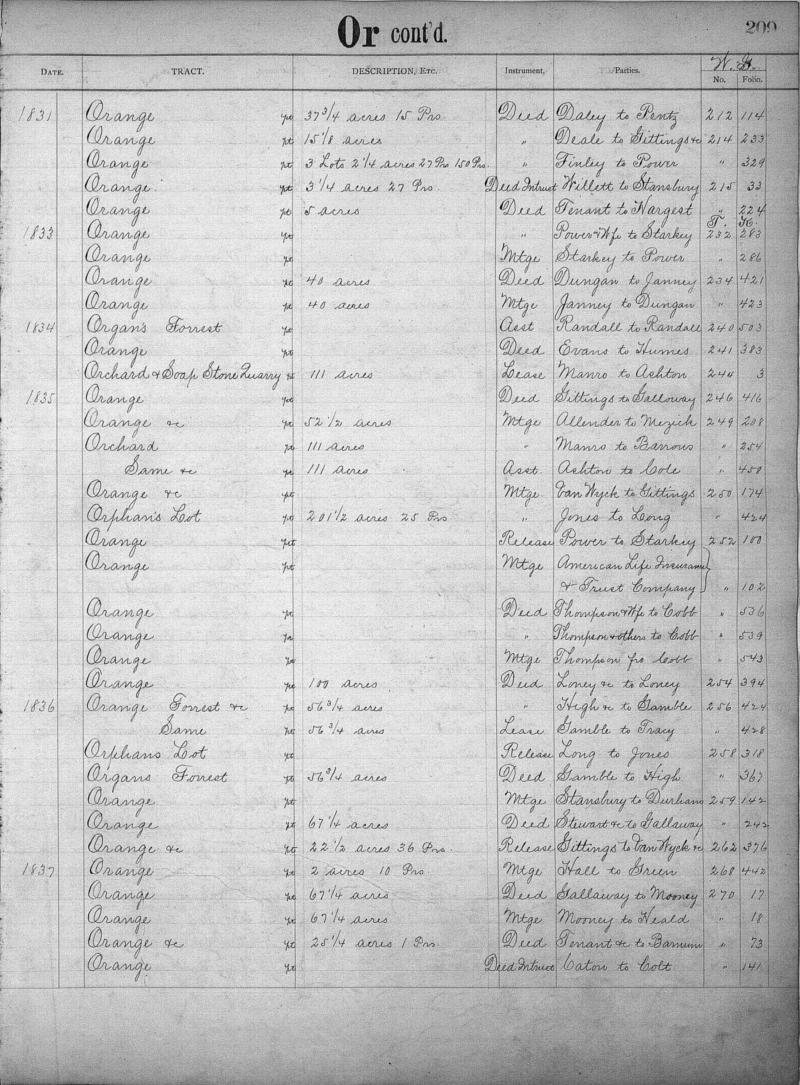 Or cont'd. 209
W. G.
DATE. TRACT. DESCRIPTION, ETC. Instrument, Parties. No. Folio.
1831 Orange pt 37 3/4 acres 15 Prs Deed Daley to Pentz 212 114
Orange pt 15 1/8 acres " Deale to Gittings &c 214 233
Orange pt 3 Lots 2 1/4 acres 27 Prs 150 Prs. " Finley to Power " 329
Orange pt 3 1/4 acres 27 Prs. Deed Intrust Willett to Stansbury 215 33
Orange pt 5 acres Deed Tenant to Hargest " 224
T. K.
1833 Orange pt " Power & Wfe to Starkey 232 283
Orange pt Mtge Starkey to Power " 286
Orange pt 40 acres Deed Dungan to Janney 234 421
Orange pt 40 acres Mtge Janney to Dungan " 423
1834 Organ's Forrest pt Asst Randall to Randall 240 503
Orange pt Deed Evans to Humes 241 383
Orchard & Soap Stone Quarry pt 111 acres Lease Manro to Ashton 244 3
1835 Orange pt Deed Gittings to Galloway 246 416
Orange &c pt 52 1/2 acres Mtge Allender to Mezick 249 208
Orchard pt 111 acres " Manro to Barrows " 254
Same &c pt 111 acres Asst. Ashton to Cole " 450
Orange &c pt Mtge Van Wyck to Gittings 250 174
Orphan's Lot pt 201 1/2 acres 25 Prs " Jones to Long " 424
Orange pt Release Power to Starkey 252 100
Orange pt Mtge American Life Insurance
& Trust Company } " 102
Orange pt Deed Thompson & Wfe to Cobb " 536
Orange pt " Thompson & others to Cobb " 539
Orange pt Mtge Thompson fro Cobb " 543
Orange pt 100 acres Deed Loney &c to Loney 254 394
1836 Orange Forrest &c pt 56 3/4 acres " High &c to Gamble 256 424
Same pt 56 3/4 acres Lease Gamble to Tracy " 428
Orphans Lot pt Release Long to Jones 258 318
Organs Forrest pt 56 3/4 acres Deed Gamble to High " 367
Orange pt Mtge Stansbury to Durham 259 142
Orange pt 67 1/4 acres Deed Stewart &c to Gallaway " 242
Orange &c pt 22 1/2 acres 36 Prs. Release Gittings to Van Wyck &c 262 376
1837 Orange pt 2 acres 10 Prs Mtge Hall to Green 268 442
Orange pt 67 1/4 acres Deed Gallaway to Mooney 270 17
Orange pt 67 1/4 acres Mtge Mooney to Heald " 18
Orange &c pt 25 1/4 acres 1 Prs. Deed Tenant &c to Barnum " 73
Orange pt Deed Intrust Caton to Colt " 141